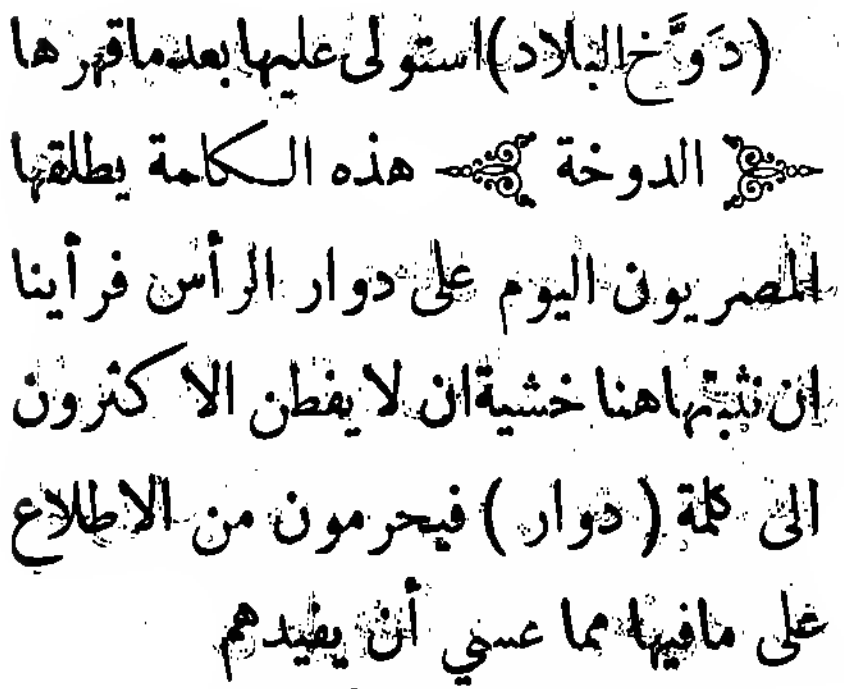 (دَوَّخ البلاد) استولى عليها بعد ما قهرها
الدوخة هذه الكلمة يطلقها
المصريون اليوم على دوار الرأس فرأينا
ان نثبتها هنا خشية ان لا يفطن الاكثرون
الى كلمة ( دوار ) فيحرمون من الاطلاع
على مافيها مما عسي أن يفيدهم